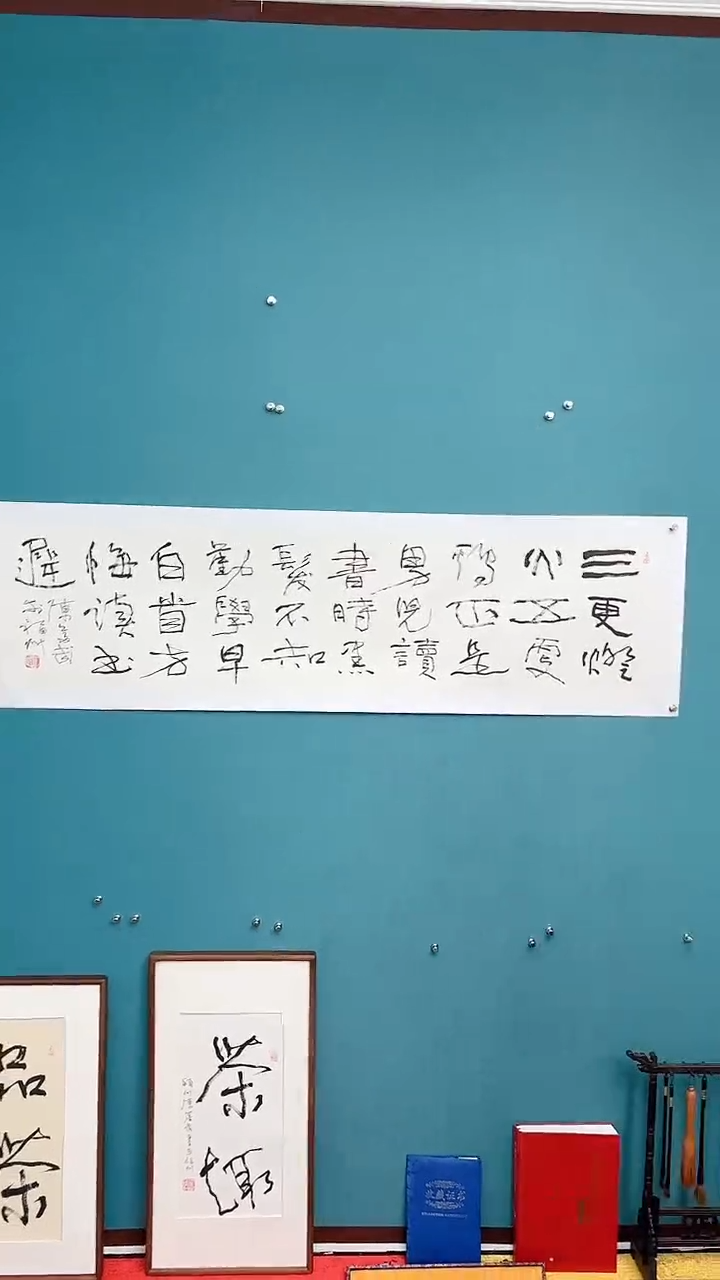 三更燈
火五更
鷄正是
男兒讀
書時黑
髮不知
勤學早
白首方
悔读书
遲
品茶
茶趣
收藏证书